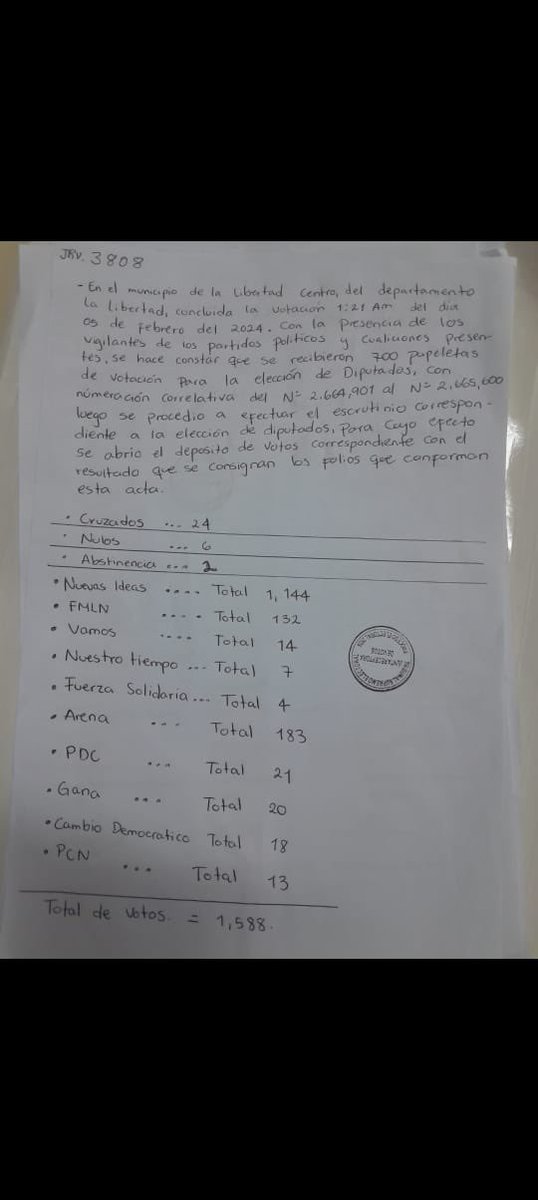 JRV. 3808
- En el municipio de la Libertad Centro, del departamento
La Libertad, concluida la votación 1:21 Am del dia
05 de Febrero del 2024. Con la presencia de los
vigilantes de los partidos politicos y cualiciones presen-
tes, se hace constar que se recibieron 700 papeletas
de votación para la elección de Diputados, con
númeración correlativa del N= 2.664,901 al N= 2,665,600
luego se procedio a efectuar el escrutinio correspon-
diente a la elección de diputados, para cuyo efecto
se abrio el deposito de votos correspondiente con el
resultado que se consignan los folios que conforman
esta acta.
• Cruzados ... 24
• Nulos ... 6
• Abstinencia ... 2
• Nuevas Ideas .... Total 1,144
• FMLN .... Total 132
• Vamos .... Total 14
• Nuestro tiempo ... Total 7
• Fuerza Solidaria ... Total 4
• Arena ... Total 183
• PDC ... Total 21
• Gana ... Total 20
• Cambio Democratico Total 18
• PCN ... Total 13
Total de votos. = 1,588.